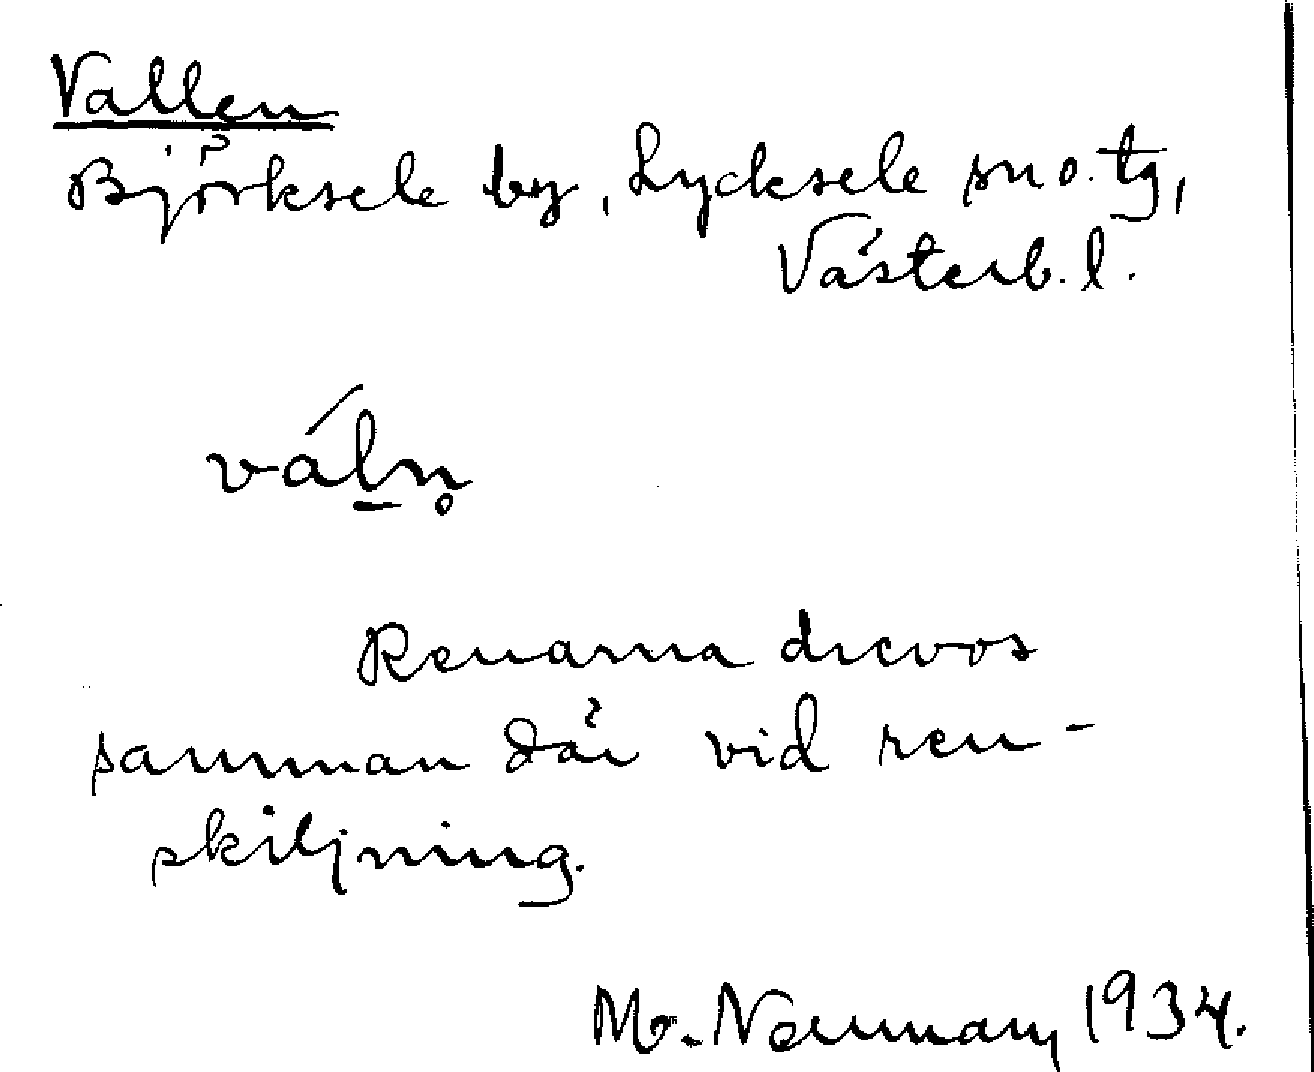 Vallen
Björksele by, Lycksele sn o. tg,
Västerb. l.
vál̲n̥
Renarna drevos
samman där vid ren-
skiljning.
M. Neuman, 1934.